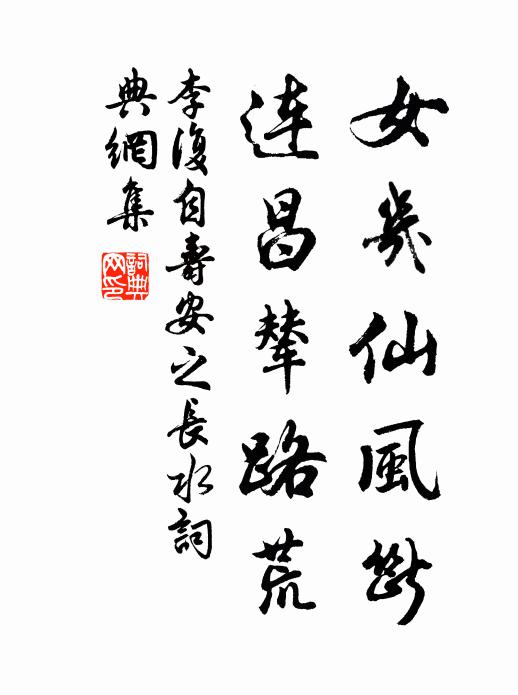 女几仙風斷
連昌輦路荒
李復自壽安之長水詞
典網集
詞典網印